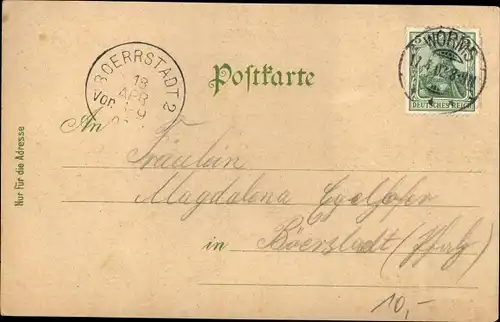 WORMS
DEUTSCHES REICH
BOERRSTADT 2
13
APR
Vor. 8-9
Postkarte
An
Nur für die Adresse
Fräulein
Magdalena
in Börrstadt (Pfalz)
10,-